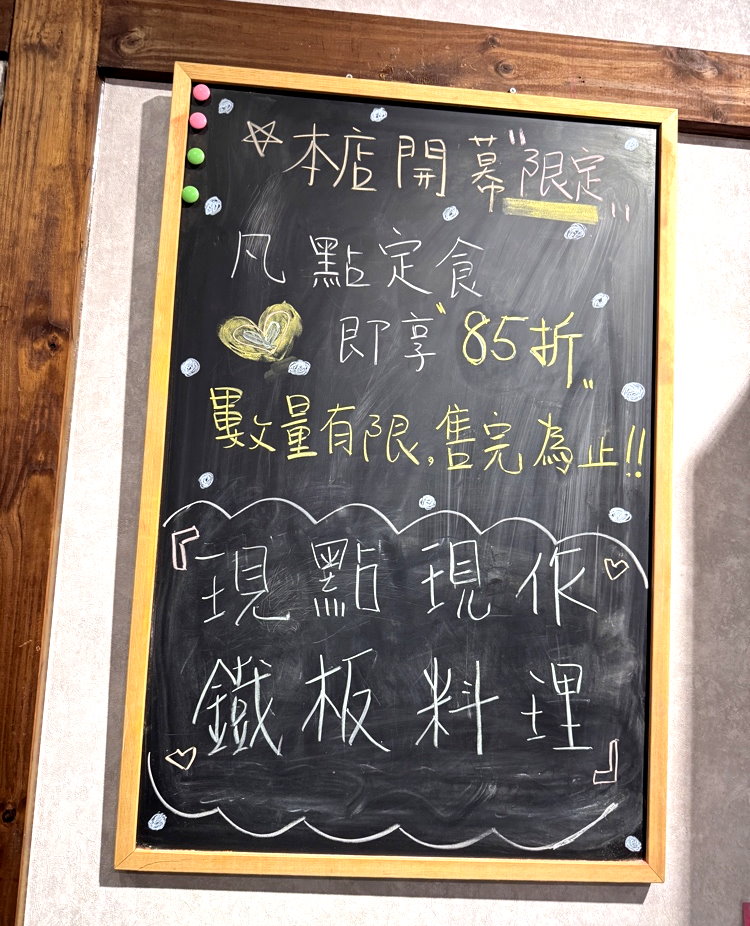 ☆本店開幕"限定"
凡點定食
即享"85折"
數量有限,售完為止!!
『現點現作
鐵板料理』